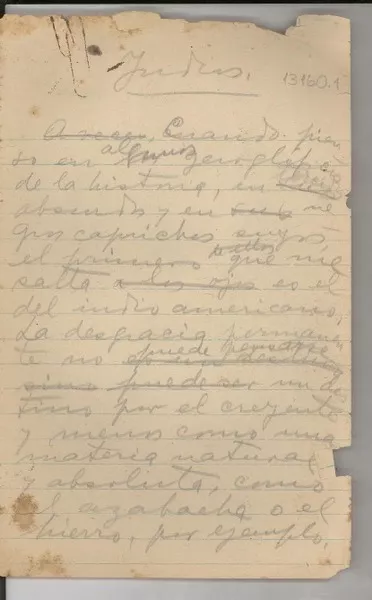 Indios.
13160.1
A veces, Cuando pien
so en algunos geroglif
de la historia, en
absurdos y en sus ne
gros caprichos suyos
el primero que me
salta a los ojos es el
del indio americano,
La desgracia perman
te no puede pensarse
sino puede ser un des
tino por el creyente
y menos como una
materia natural
y absoluta, como
el azabache o el
hierro, por ejemplo,